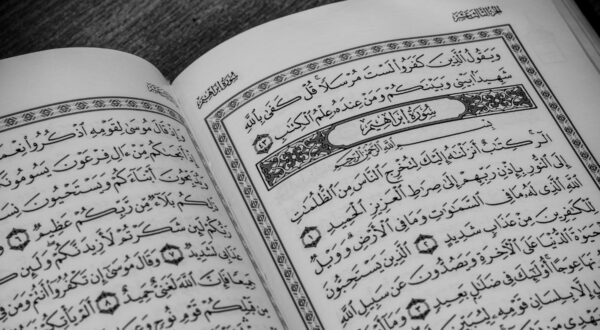 الجزء الثالث عشر
سورة إبراهيم
وَيَقُولُ ٱلَّذِينَ كَفَرُوا۟ لَسْتَ مُرْسَلًا قُلْ كَفَىٰ بِٱللَّهِ
شَهِيدًۢا بَيْنِى وَبَيْنَكُمْ وَمَنْ عِندَهُۥ عِلْمُ ٱلْكِتَٰبِ ٤٣
سُورَةُ إِبْرَاهِيمَ
بِسْمِ ٱللَّهِ ٱلرَّحْمَٰنِ ٱلرَّحِيمِ
الٓر كِتَٰبٌ أَنزَلْنَٰهُ إِلَيْكَ لِتُخْرِجَ ٱلنَّاسَ مِنَ ٱلظُّلُمَٰتِ
إِلَى ٱلنُّورِ بِإِذْنِ رَبِّهِمْ إِلَىٰ صِرَٰطِ ٱلْعَزِيزِ ٱلْحَمِيدِ ١
ٱللَّهِ ٱلَّذِى لَهُۥ مَا فِى ٱلسَّمَٰوَٰتِ وَمَا فِى ٱلْأَرْضِ وَوَيْلٌ
لِّلْكَٰفِرِينَ مِنْ عَذَابٍ شَدِيدٍ ٢ ٱلَّذِينَ يَسْتَحِبُّونَ
ٱلْحَيَوٰةَ ٱلدُّنْيَا عَلَى ٱلْأَخِرَةِ وَيَصُدُّونَ عَن سَبِيلِ ٱللَّهِ
عِوَجًا أُو۟لَٰٓئِكَ فِى ضَلَٰلٍ بَعِيدٍ ٣
إِلَّا بِلِسَانِ قَوْمِهِۦ
سورة إبراهيم
قَالَ مُوسَىٰ لِقَوْمِهِ ٱذْكُرُوا۟
مِّنْ ءَالِ فِرْعَوْنَ يَسُومُونَكُمْ
أَبْنَآءَكُمْ وَيَسْتَحْيُونَ
بَلَآءٌ مِّن رَّبِّكُمْ عَظِيمٌ ٦
لَئِن شَكَرْتُمْ لَأَزِيدَنَّكُمْ وَلَئِن
لَشَدِيدٌ ٧ وَقَالَ مُوسَىٰٓ إِن تَكْفُرُوٓا۟ أَنتُمْ وَمَن
فَإِنَّ ٱللَّهَ لَغَنِىٌّ حَمِيدٌ ٨ أَلَمْ
قَبْلِكُمْ قَوْمِ نُوحٍ